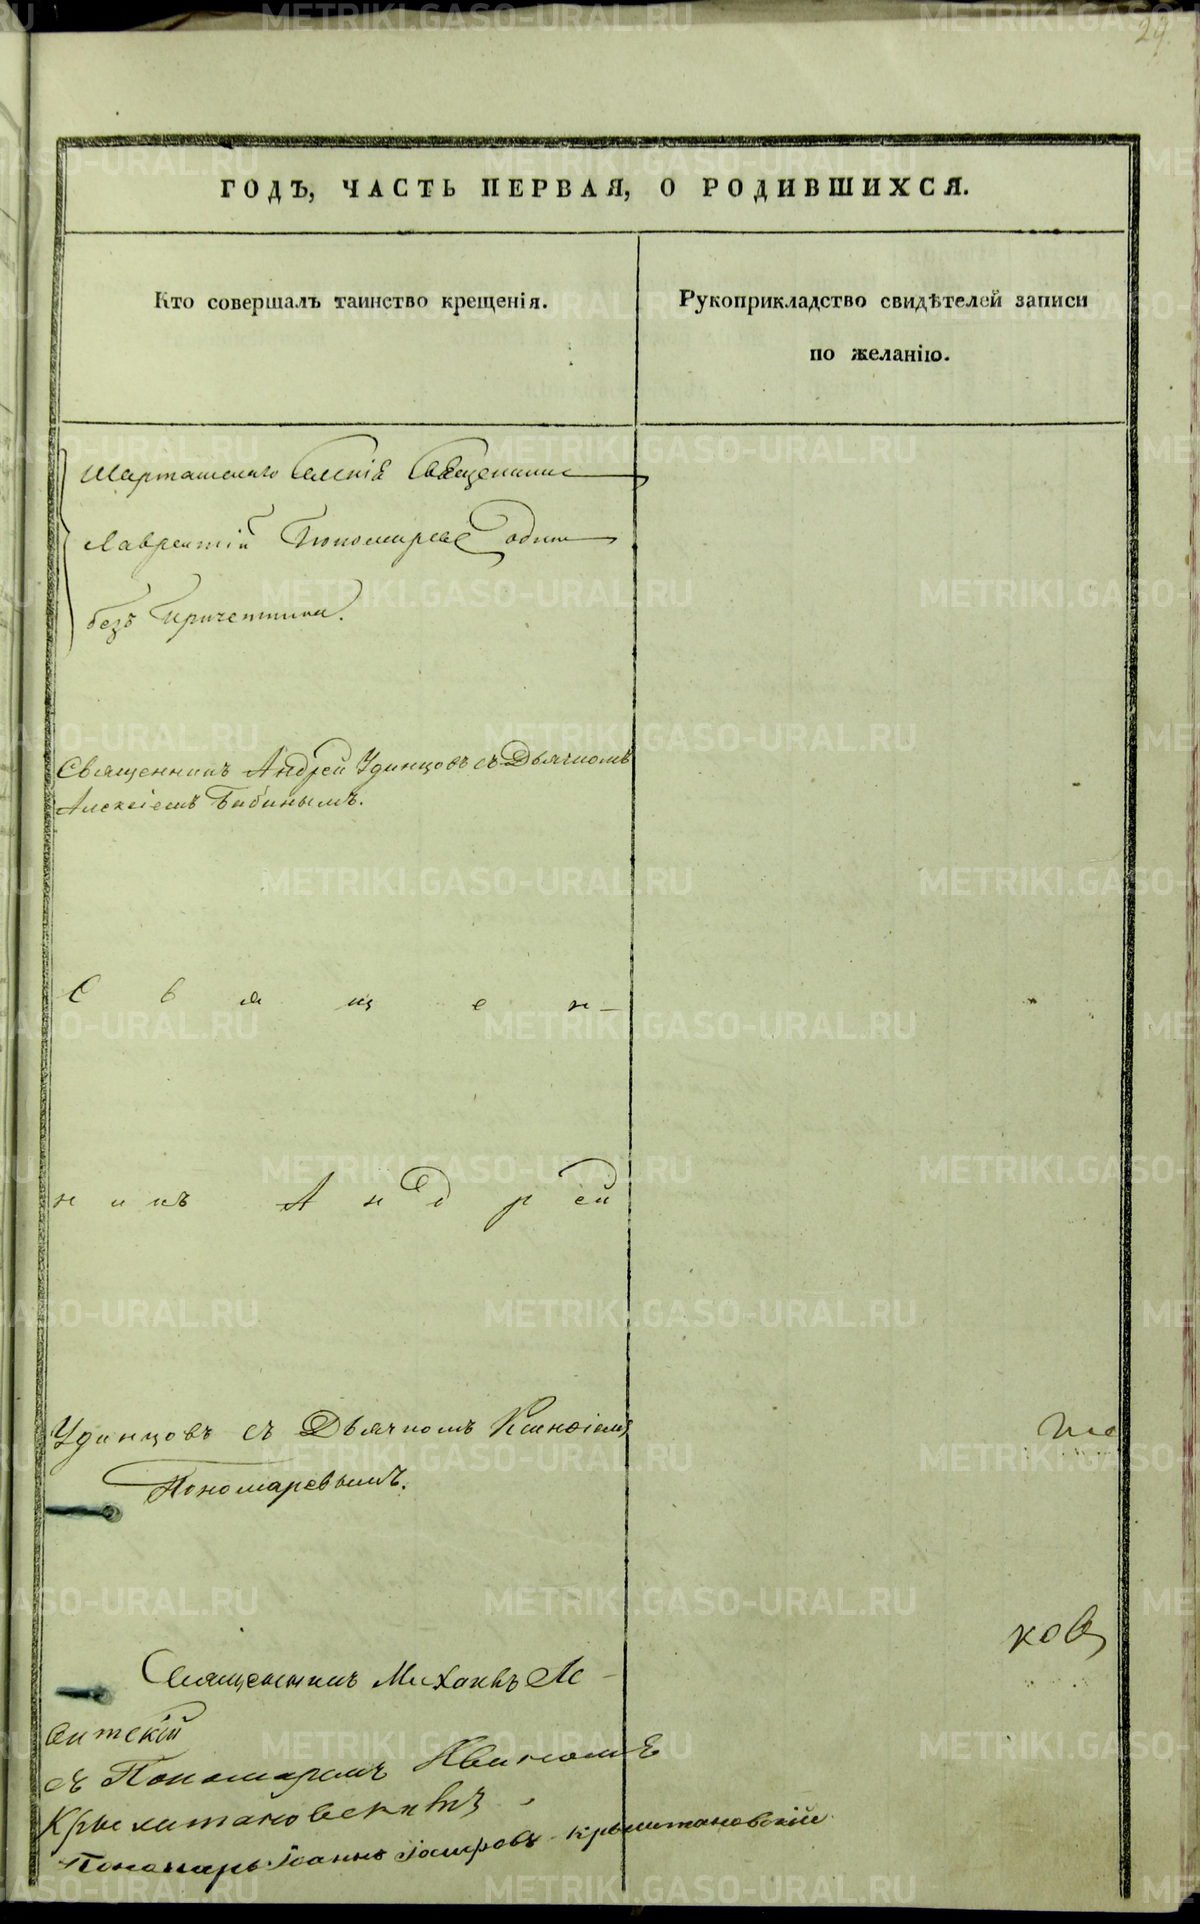 29.
ГОДЪ, ЧАСТЬ ПЕРВАЯ, О РОДИВШИХСЯ.
Кто совершалъ таинство крещенія.
Рукоприкладство свидѣтелей записи
по желанію.
Шарташскаго Священникъ
Лаврентій Пономаревъ одинъ
безъ Причетника.
Священникъ Андрей Удинцовъ съ Дьячкомъ
Алексіемъ Бабинымъ.
С в я щ е н-
н и къ А н д р ей
Удинцовъ съ Дьячкомъ
Пономаревымъ.
ков
Священникъ Михаилъ Ле-
витскій
съ Пономаремъ Иваномъ
Пономарь Іоаннъ
METRIKI.GASO-URAL.RU